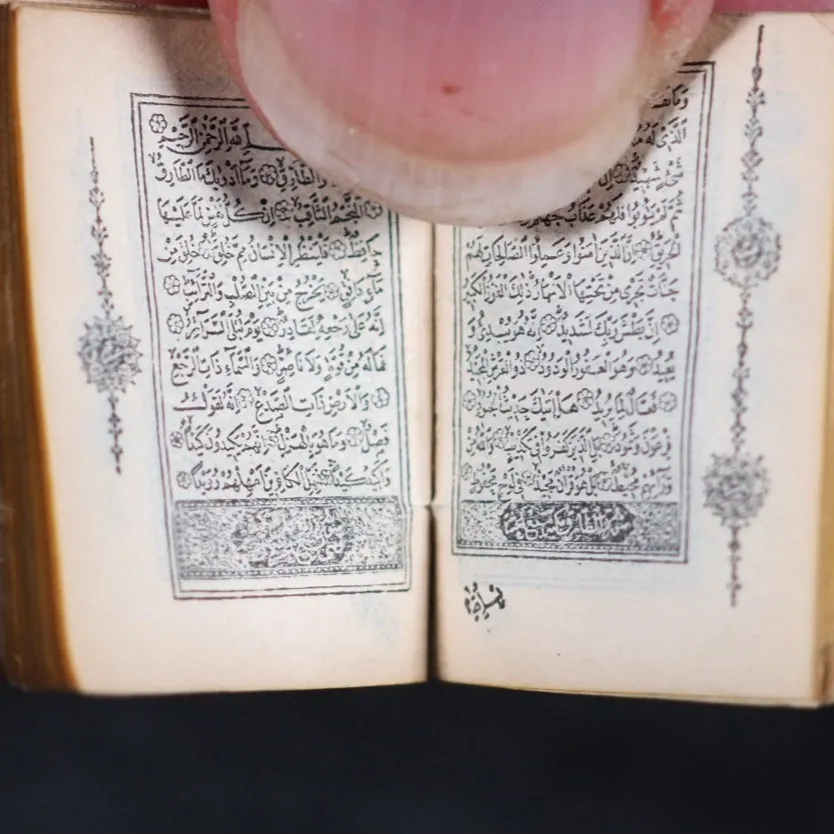 الَّذِي لَهُ
شَيْءٍ شَهِيدٌ إِنَّ
ثُمَّ لَمْ يَتُوبُوا فَلَهُمْ عَذَابُ جَهَنَّمَ
الْحَرِيقِ إِنَّ الَّذِينَ آمَنُوا وَعَمِلُوا الصَّالِحَاتِ لَهُمْ
جَنَّاتٌ تَجْرِي مِنْ تَحْتِهَا الْأَنْهَارُ ذَلِكَ الْفَوْزُ الْكَبِيرُ
إِنَّ بَطْشَ رَبِّكَ لَشَدِيدٌ إِنَّهُ هُوَ يُبْدِئُ وَ
يُعِيدُ وَهُوَ الْغَفُورُ الْوَدُودُ ذُو الْعَرْشِ الْمَجِيدُ
فَعَّالٌ لِمَا يُرِيدُ هَلْ أَتٰيكَ حَدِيثُ الْجُنُودِ
فِرْعَوْنَ وَثَمُودَ بَلِ الَّذِينَ كَفَرُوا فِي تَكْذِيبٍ وَاللَّهُ مِنْ
وَرَائِهِمْ مُحِيطٌ بَلْ هُوَ قُرْآنٌ مَجِيدٌ فِي لَوْحٍ مَحْفُوظٍ
سورة الطارق
اللَّهِ الرَّحْمَٰنِ الرَّحِيمِ
وَالطَّارِقِ وَمَا أَدْرٰيكَ مَا الطَّارِقُ
النَّجْمُ الثَّاقِبُ إِنْ كُلُّ نَفْسٍ لَمَّا عَلَيْهَا
حَافِظٌ فَلْيَنْظُرِ الْإِنْسَانُ مِمَّ خُلِقَ خُلِقَ مِنْ
مَاءٍ دَافِقٍ يَخْرُجُ مِنْ بَيْنِ الصُّلْبِ وَالتَّرَائِبِ
إِنَّهُ عَلَى رَجْعِهِ لَقَادِرٌ يَوْمَ تُبْلَى السَّرَائِرُ
فَمَا لَهُ مِنْ قُوَّةٍ وَلَا نَاصِرٍ وَالسَّمَاءِ ذَاتِ الرَّجْعِ
وَالْأَرْضِ ذَاتِ الصَّدْعِ إِنَّهُ لَقَوْلٌ
فَصْلٌ وَمَا هُوَ بِالْهَزْلِ إِنَّهُمْ يَكِيدُونَ كَيْدًا
وَأَكِيدُ كَيْدًا فَمَهِّلِ الْكَافِرِينَ أَمْهِلْهُمْ رُوَيْدًا